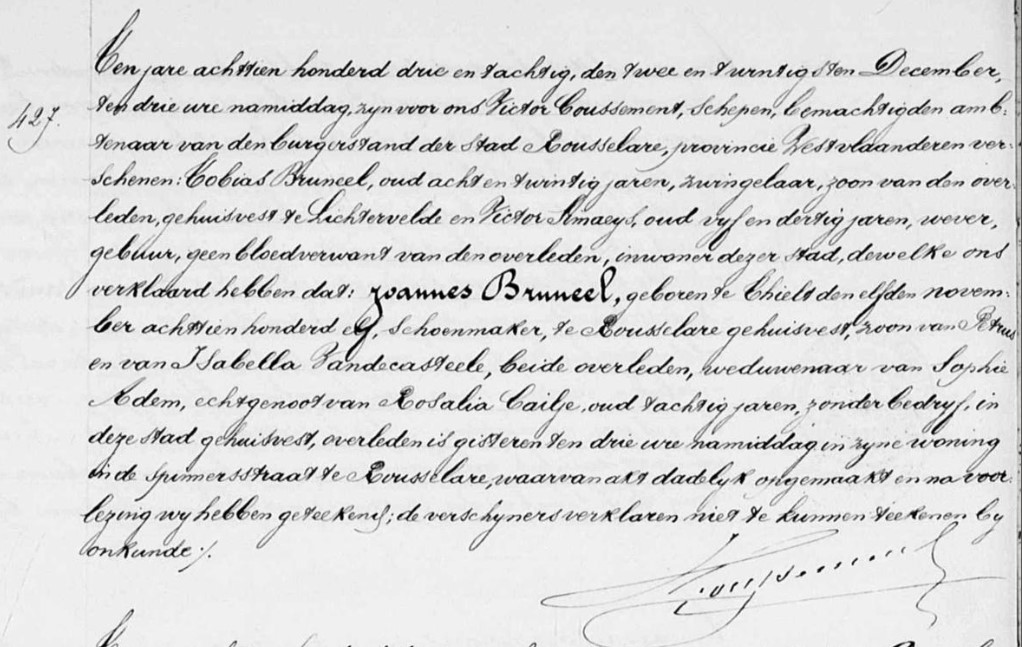 Ten jare achttien honderd drie en tachtig, den twee en twintigsten December,
427. ten drie ure namiddag, zyn voor ons Victor Coussement, Schepen, bemachtigden amb-
tenaar van den burgerstand der stad Rousselare, provincie Westvlaanderen ver-
schenen: Tobias Bruneel, oud acht en twintig jaren, zwingelaar, zoon van den over-
leden, gehuisvest te Lichtervelde en Victor Simaeys, oud vyf en dertig jaren, wever,
gebuur, geen bloedverwant van den overleden, inwoner dezer stad, dewelke ons
verklaard hebben dat: Joannes Bruneel, geboren te Thielt den elfden novem-
ber achttien honderd elf, schoenmaker, te Rousselare gehuisvest, zoon van Petrus
en van Isabella Vandecasteele, beide overleden, weduwenaar van Sophie
Adem, echtgenoot van Rosalia Cailje, oud tachtig jaren, zonder bedryf, in
deze stad gehuisvest, overleden is gisteren ten drie ure namiddag in zyne woning
in de Spinnersstraat te Rousselare, waarvan akt dadelyk opgemaakt en na voor-
lezing wy hebben geteekend; de verschyners verklaren niet te kunnen teekenen by
onkunde ./.
Coussement